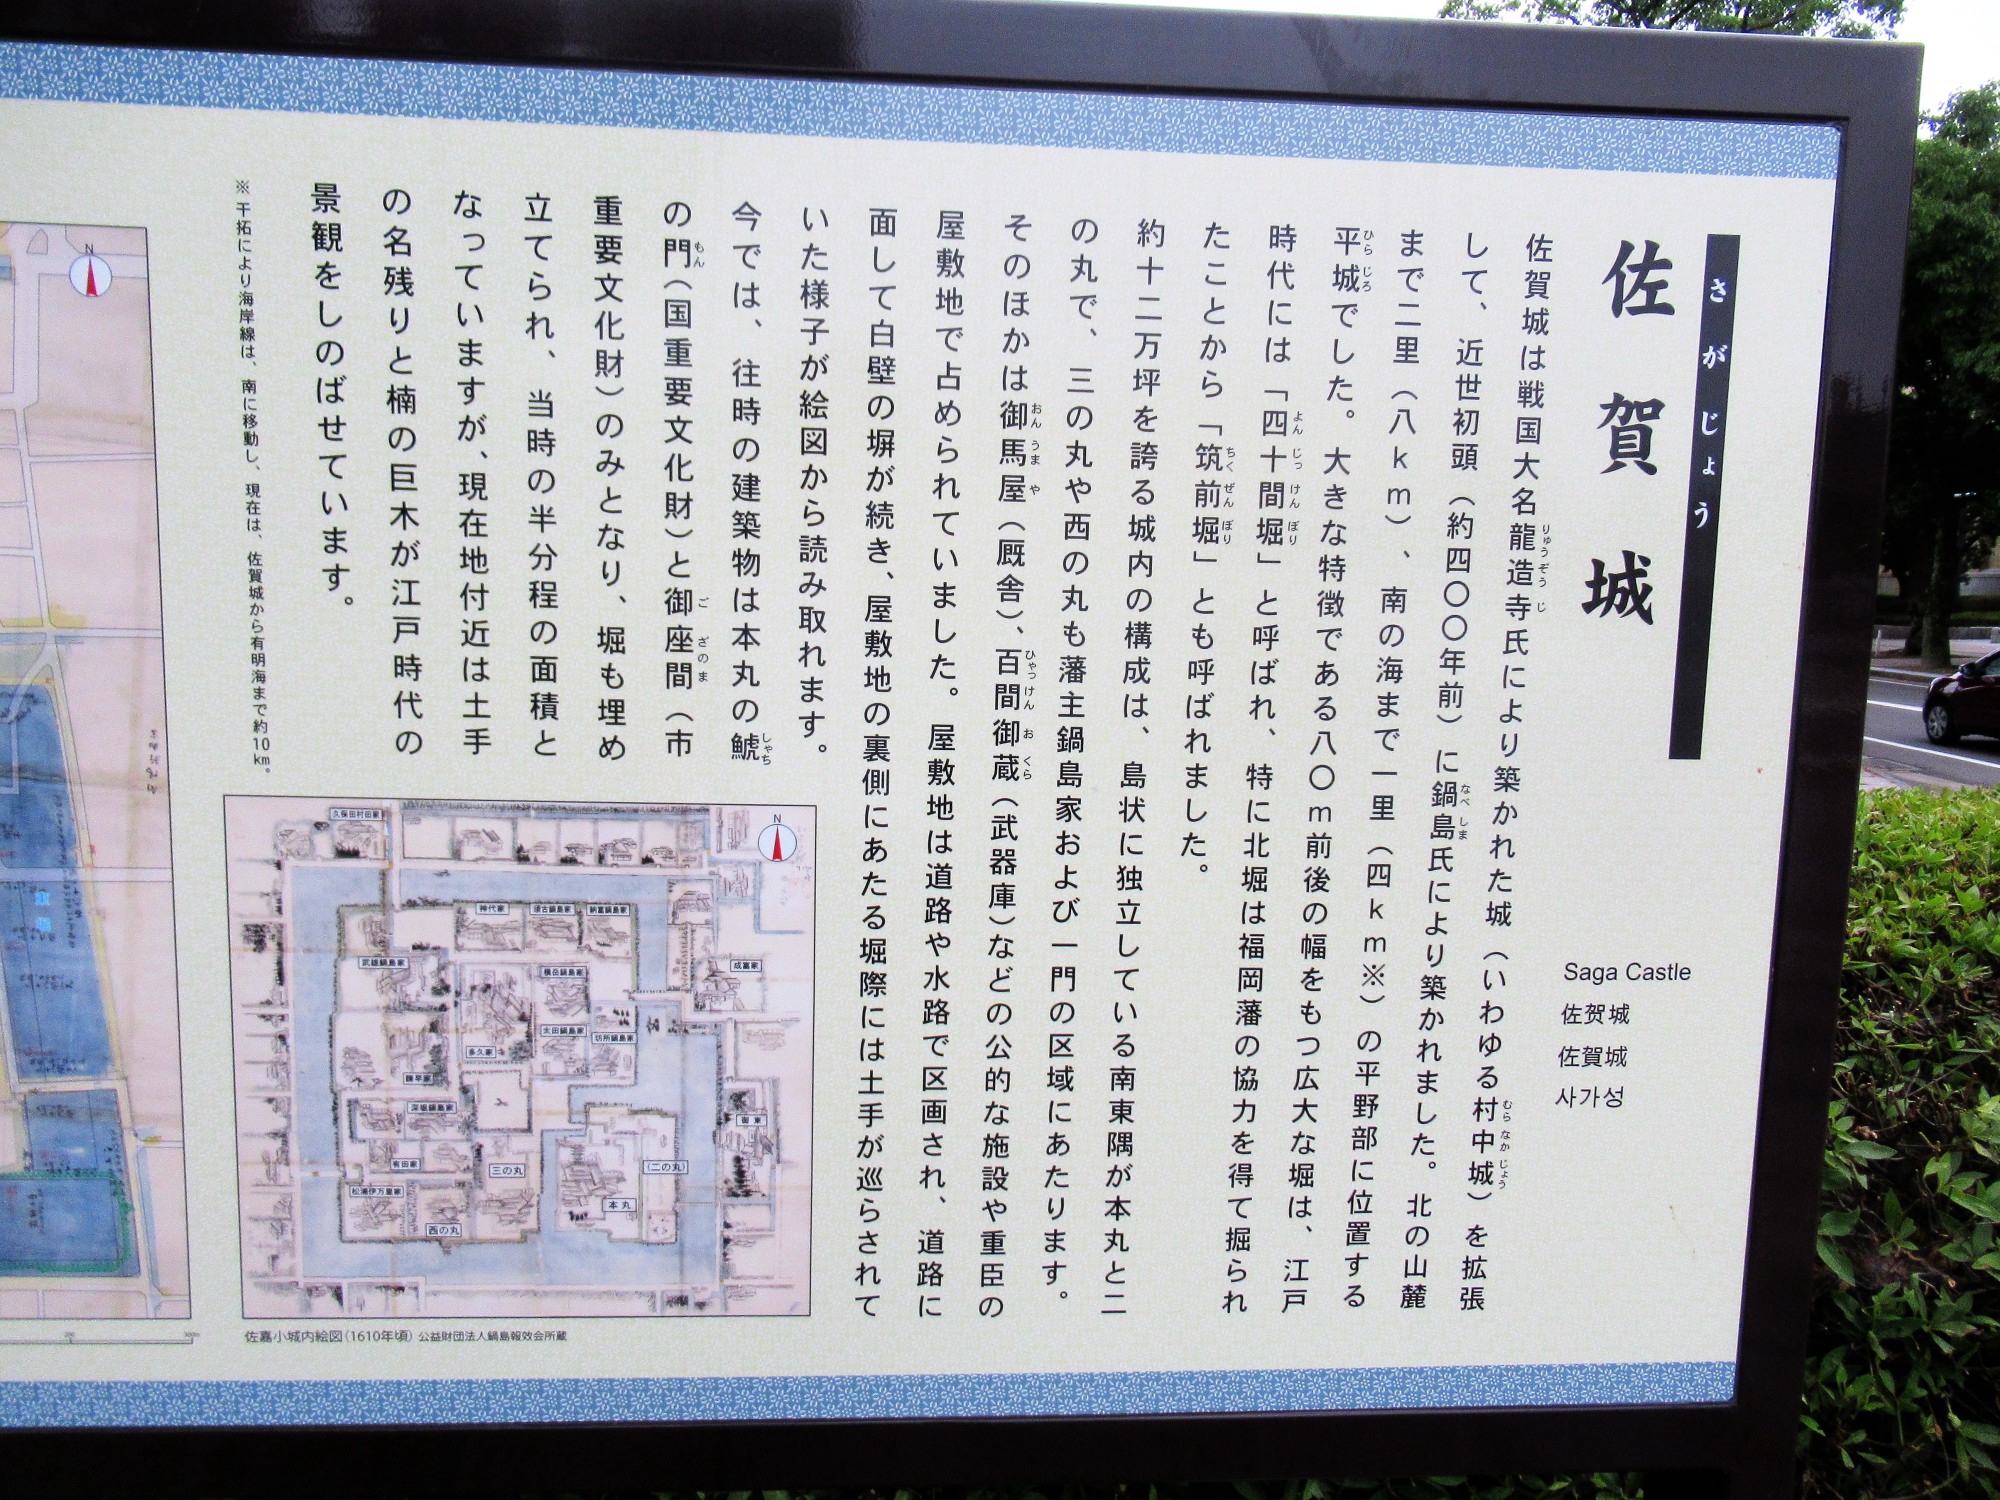 さがじょう
佐賀城
Saga Castle
佐贺城
佐賀城
사가성
佐賀城は戦国大名龍造寺氏により築かれた城（いわゆる村中城）を拡張
して、近世初頭（約四〇〇年前）に鍋島氏により築かれました。北の山麓
まで二里（八km）、南の海まで一里（四km※）の平野部に位置する
平城でした。大きな特徴である八〇m前後の幅をもつ広大な堀は、江戸
時代には「四十間堀」と呼ばれ、特に北堀は福岡藩の協力を得て掘られ
たことから「筑前堀」とも呼ばれました。
約十二万坪を誇る城内の構成は、島状に独立している南東隅が本丸と二
の丸で、三の丸や西の丸も藩主鍋島家および一門の区域にあたります。
そのほかは御馬屋（厩舎）、百間御蔵（武器庫）などの公的な施設や重臣の
屋敷地で占められていました。屋敷地は道路や水路で区画され、道路に
面して白壁の塀が続き、屋敷地の裏側にあたる堀際には土手が巡らされて
いた様子が絵図から読み取れます。
今では、往時の建築物は本丸の鯱
の門（国重要文化財）と御座間（市
重要文化財）のみとなり、堀も埋め
立てられ、当時の半分程の面積と
なっていますが、現在地付近は土手
の名残りと楠の巨木が江戸時代の
景観をしのばせています。
※干拓により海岸線は、南に移動し、現在は、佐賀城から有明海まで約10km。
N
久保田村田家
神代家
須古鍋島家
納富鍋島家
武雄鍋島家
横岳鍋島家
成富家
太田鍋島家
坊所鍋島家
多久家
諫早家
深堀鍋島家
有田家
三の丸
（二の丸）
松浦伊万里家
本丸
西の丸
佐嘉小城内絵図（1610年頃）公益財団法人鍋島報效会所蔵
N
200
300m